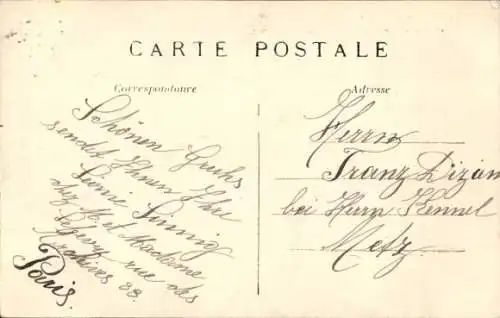 CARTE POSTALE
Correspondance
Schönen Gruhs
sendet Ihnen Ihre
chez Mme Madame
rue des
Archives 88.
Paris.
Adresse
Herrn
Franz Dizan
bei Herrn Kennel
Metz.